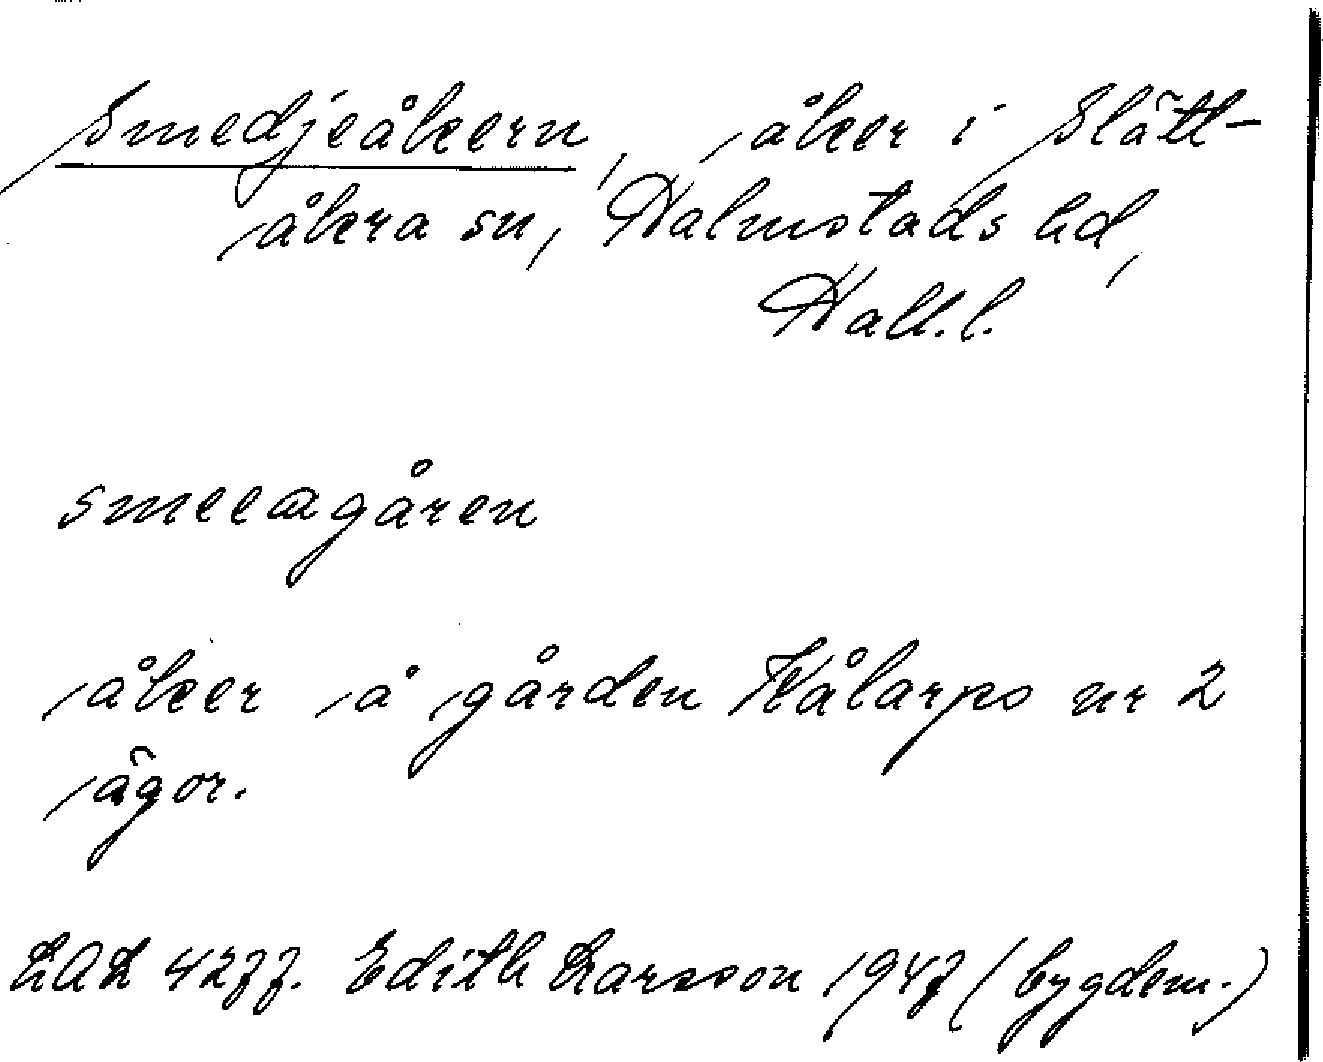 Smedjeåkern, åker i Slätt-
åkra sn, Halmstads hd,
Hall.l.
smeeagåren
åker å gården Kålarps nr 2
ägor.
LAL 4277. Edith Larsson 1947 (bygdem.)